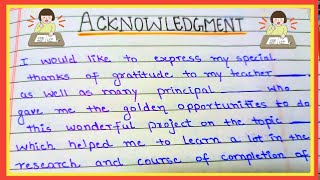 ACKNOWLEDGMENT
I would like to express my special
thanks of gratitude to my teacher
as well as many principal who
gave me the golden opportunities to do
this wonderful project on the topic
which helped me to learn a lot in the
research and course of completion of